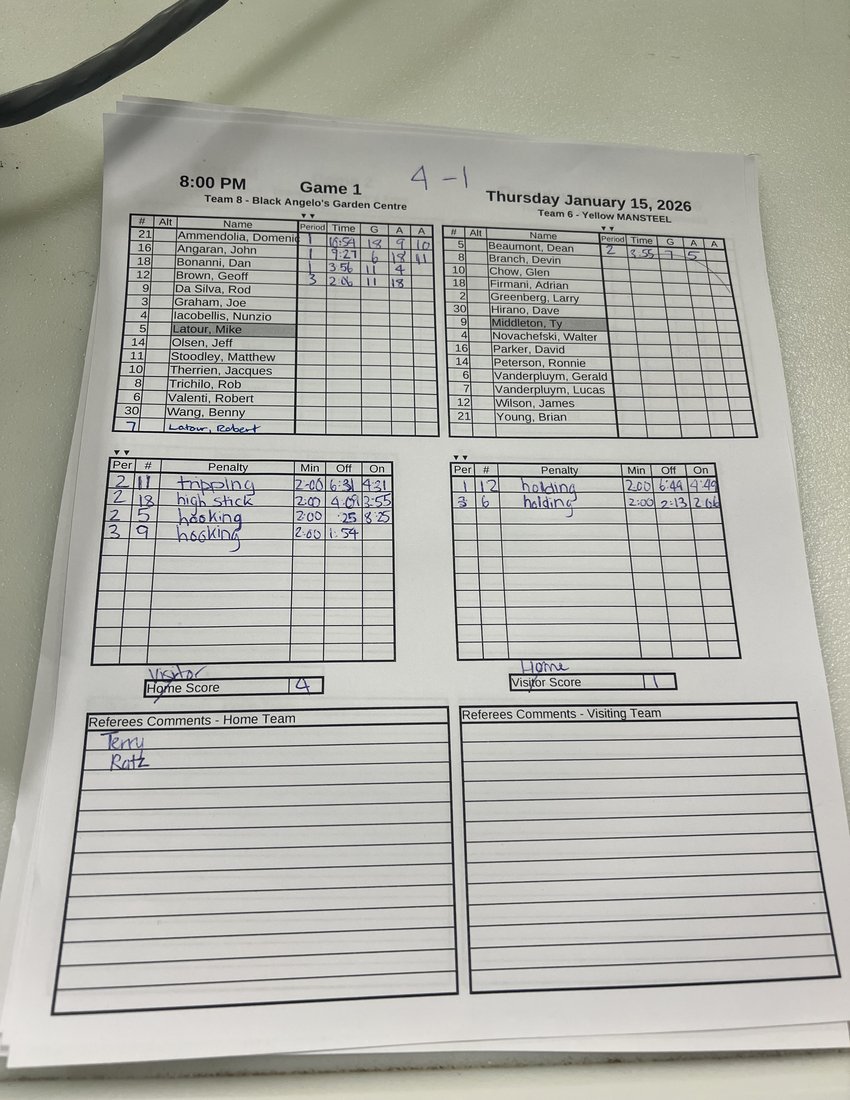 4 - 1
8:00 PM Game 1 Thursday January 15, 2026
Team 8 - Black Angelo's Garden Centre
# Alt Name Period Time G A A
21 Ammendolia, Domenic 1 16:54 18 9 10
16 Angaran, John 1 9:27 6 18 11
18 Bonanni, Dan 1 3:56 11 4
12 Brown, Geoff 3 2:06 11 18
9 Da Silva, Rod
3 Graham, Joe
4 Iacobellis, Nunzio
5 Latour, Mike
14 Olsen, Jeff
11 Stoodley, Matthew
10 Therrien, Jacques
8 Trichilo, Rob
6 Valenti, Robert
30 Wang, Benny
7 Latour, Robert
Team 6 - Yellow MANSTEEL
# Alt Name Period Time G A A
5 Beaumont, Dean 2 3:55 7 5
8 Branch, Devin
10 Chow, Glen
18 Firmani, Adrian
2 Greenberg, Larry
30 Hirano, Dave
9 Middleton, Ty
4 Novachefski, Walter
16 Parker, David
14 Peterson, Ronnie
6 Vanderpluym, Gerald
7 Vanderpluym, Lucas
12 Wilson, James
21 Young, Brian
Per # Penalty Min Off On
2 11 tripping 2:00 6:31 4:31
2 18 high stick 2:00 4:09 3:55
2 5 hooking 2:00 :25 8:25
3 9 hooking 2:00 1:54
Per # Penalty Min Off On
1 12 holding 2:00 6:49 4:49
3 6 holding 2:00 2:13 2:06
Visitor
Home Score 4
Home
Visitor Score 1
Referees Comments - Home Team
Terry
Ratz
Referees Comments - Visiting Team